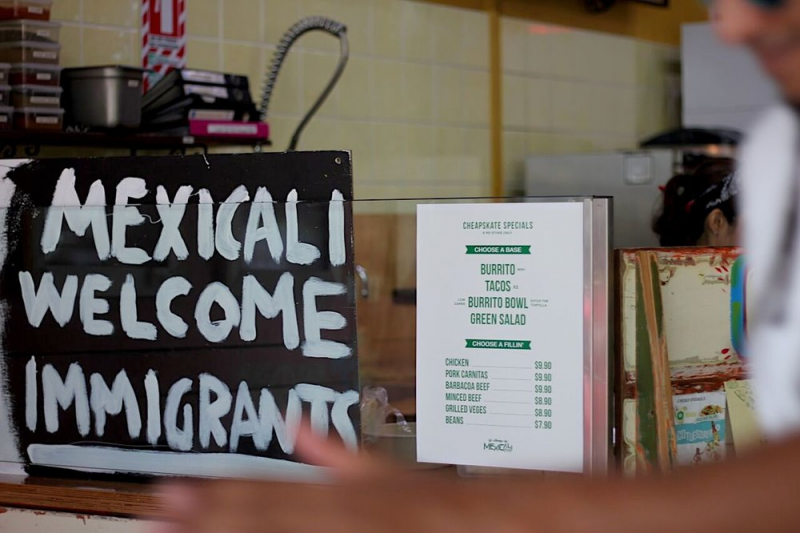 MEXICALI
WELCOME
IMMIGRANTS
CHEAPSKATE SPECIALS
CHOOSE A BASE
BURRITO
TACOS
BURRITO BOWL
GREEN SALAD
CHOOSE A FILLIN'
CHICKEN $9.90
PORK CARNITAS $9.90
BARBACOA BEEF $9.90
MINCED BEEF $8.90
GRILLED VEGES $8.90
BEANS $7.90